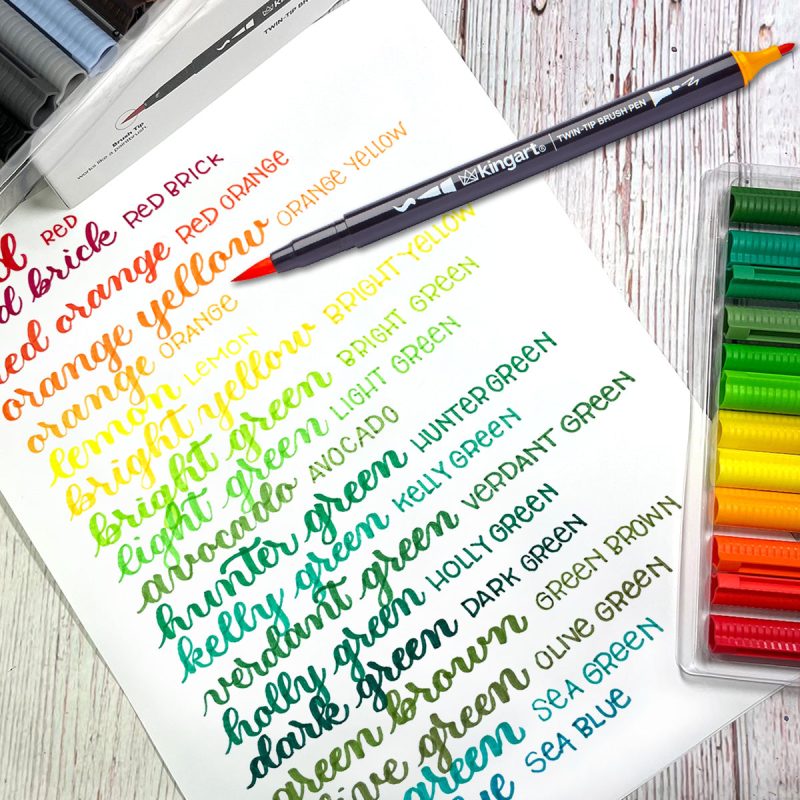 TWIN-TIP
Brush Tip
works like a paintbrush
kingart® TWIN-TIP BRUSH PEN
RED
brick RED BRICK
red orange RED ORANGE
orange yellow ORANGE YELLOW
orange ORANGE
lemon LEMON
bright yellow BRIGHT YELLOW
bright green BRIGHT GREEN
light green LIGHT GREEN
avocado AVOCADO
hunter green HUNTER GREEN
kelly green KELLY GREEN
verdant green VERDANT GREEN
holly green HOLLY GREEN
dark green DARK GREEN
green brown GREEN BROWN
olive green OLIVE GREEN
green SEA GREEN
SEA BLUE